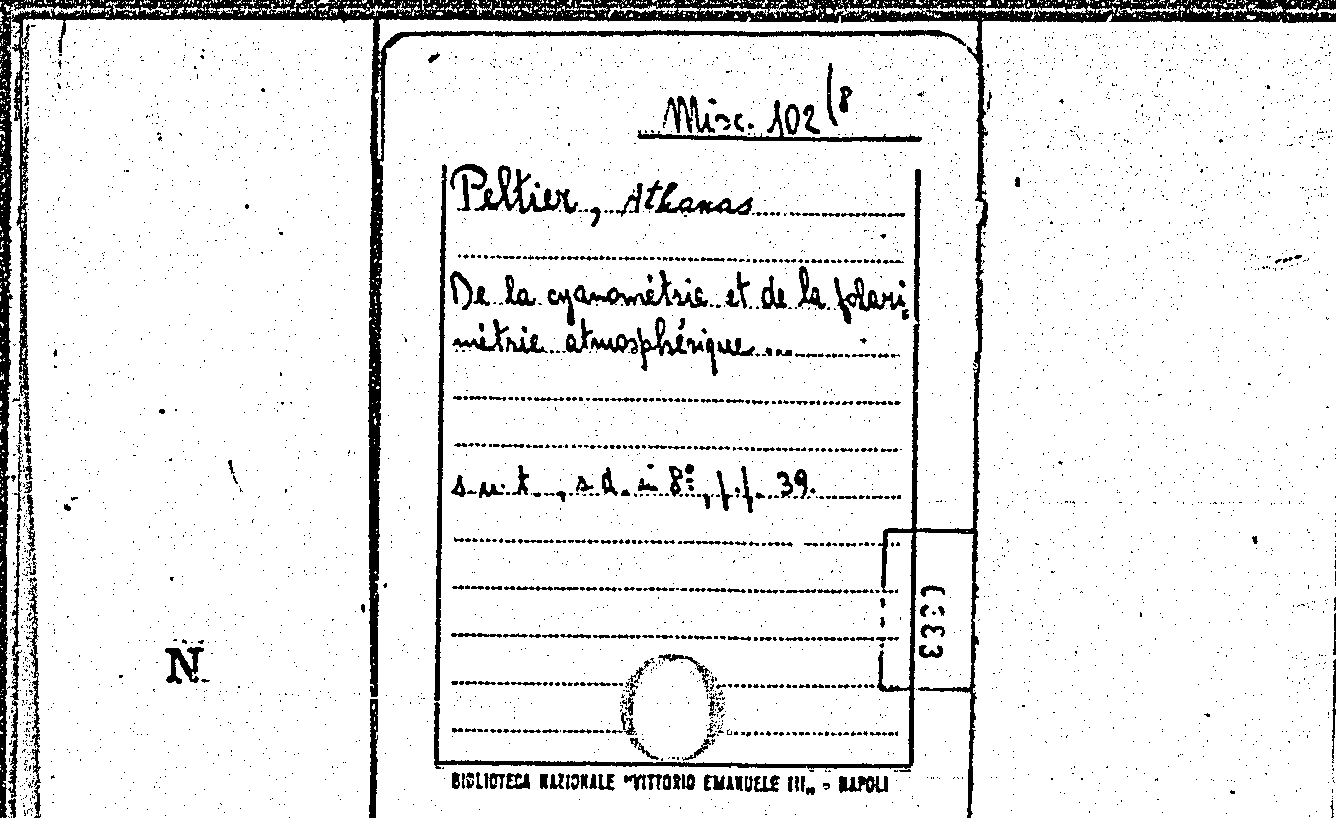 Misc. 102 (8
Peltier, Athanas
De la cyanométrie et de la polari-
métrie atmosphérique...
s.n.t., s.d. in 8°, p.p. 39.
N
BIBLIOTECA NAZIONALE "VITTORIO EMANUELE III„ - NAPOLI